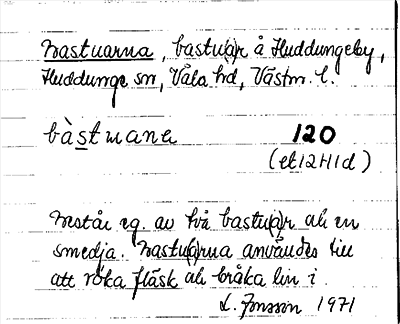 Bastuarna, bastu(a)r å Huddungeby,
Huddunge sn, Våla hd, Västm. l.
bàstuana 120
(ek12H1d)
Består eg. av två bastu(a)r och en
smedja. Bastu(a)rna användes till
att röka fläsk och bråka lin i.
L. Jonsson 1971